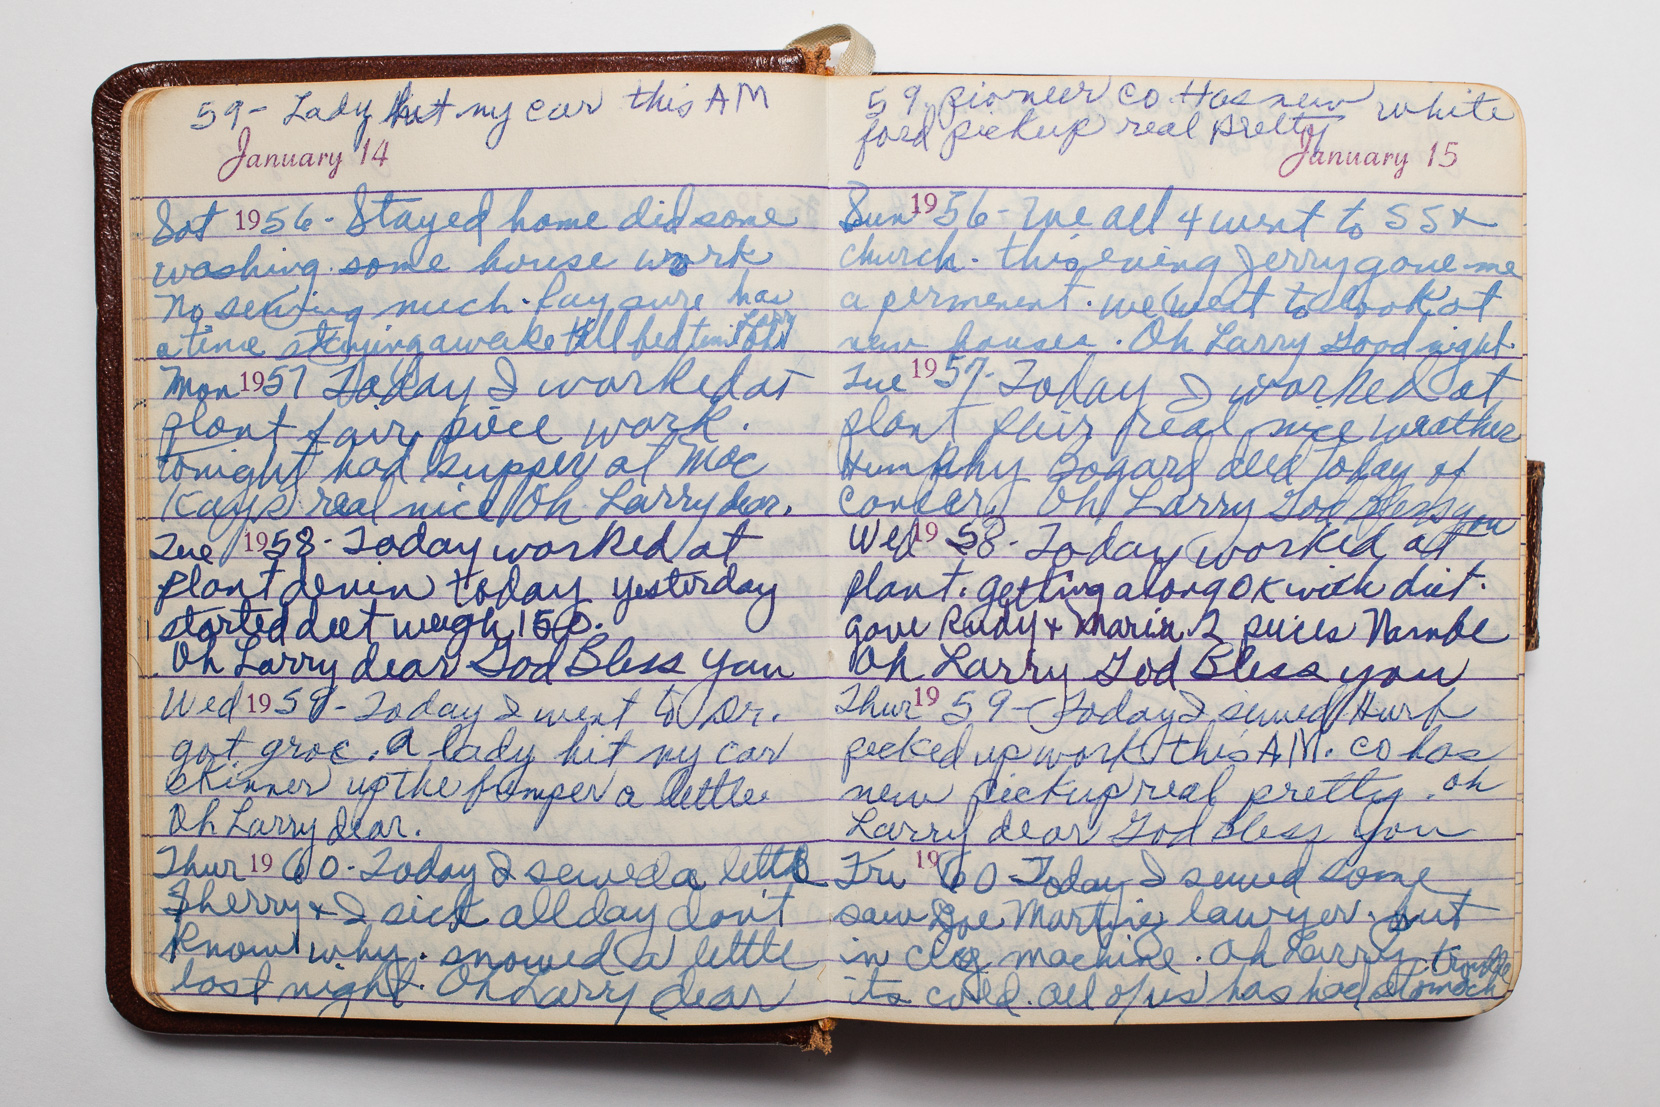 59- Lady hit my car this AM
January 14
Sat 1956- Stayed home did some
washing. some house work
No sewing much. Ray sure has
a time staying awake till bedtime Oh Larry
Mon 1957 Today I worked at
plant fair piece work.
tonight had supper at Mac
Kays real nice Oh Larry dear.
Tue 1958- Today worked at
plant denin today yesterday
started diet weigh 150.
Oh Larry dear God Bless you
Wed 1959- Today I went to Dr.
got groc. A lady hit my car
skinner up the bumper a little
Oh Larry dear.
Thur 1960- Today I sewed a little
Sherry & I sick all day don't
know why. snowed a little
last night. Oh Larry dear
59. pioneer co. Has new white
ford pickup real pretty
January 15
Sun 1956- We all 4 went to SS &
church. this evening Jerry gave me
a perment. we went to look at
new houses. Oh Larry Good night.
Tue 1957- Today I worked at
plant fair real nice weather
Humphry Bogard died today of
cancer. Oh Larry God Bless you
Wed 1958- Today worked at
plant. getting along OK with diet.
gave Rudy & Maria 2 pieces
Oh Larry God Bless you
Thur 1959- Today I sewed Hurb
picked up work this AM. co has
new pickup real pretty. oh
Larry dear God Bless you
Fri 1960 Today I sewed some
saw Joe Martin lawyer. put
in machine. Oh Larry
its cold. all of us has had stomach trouble